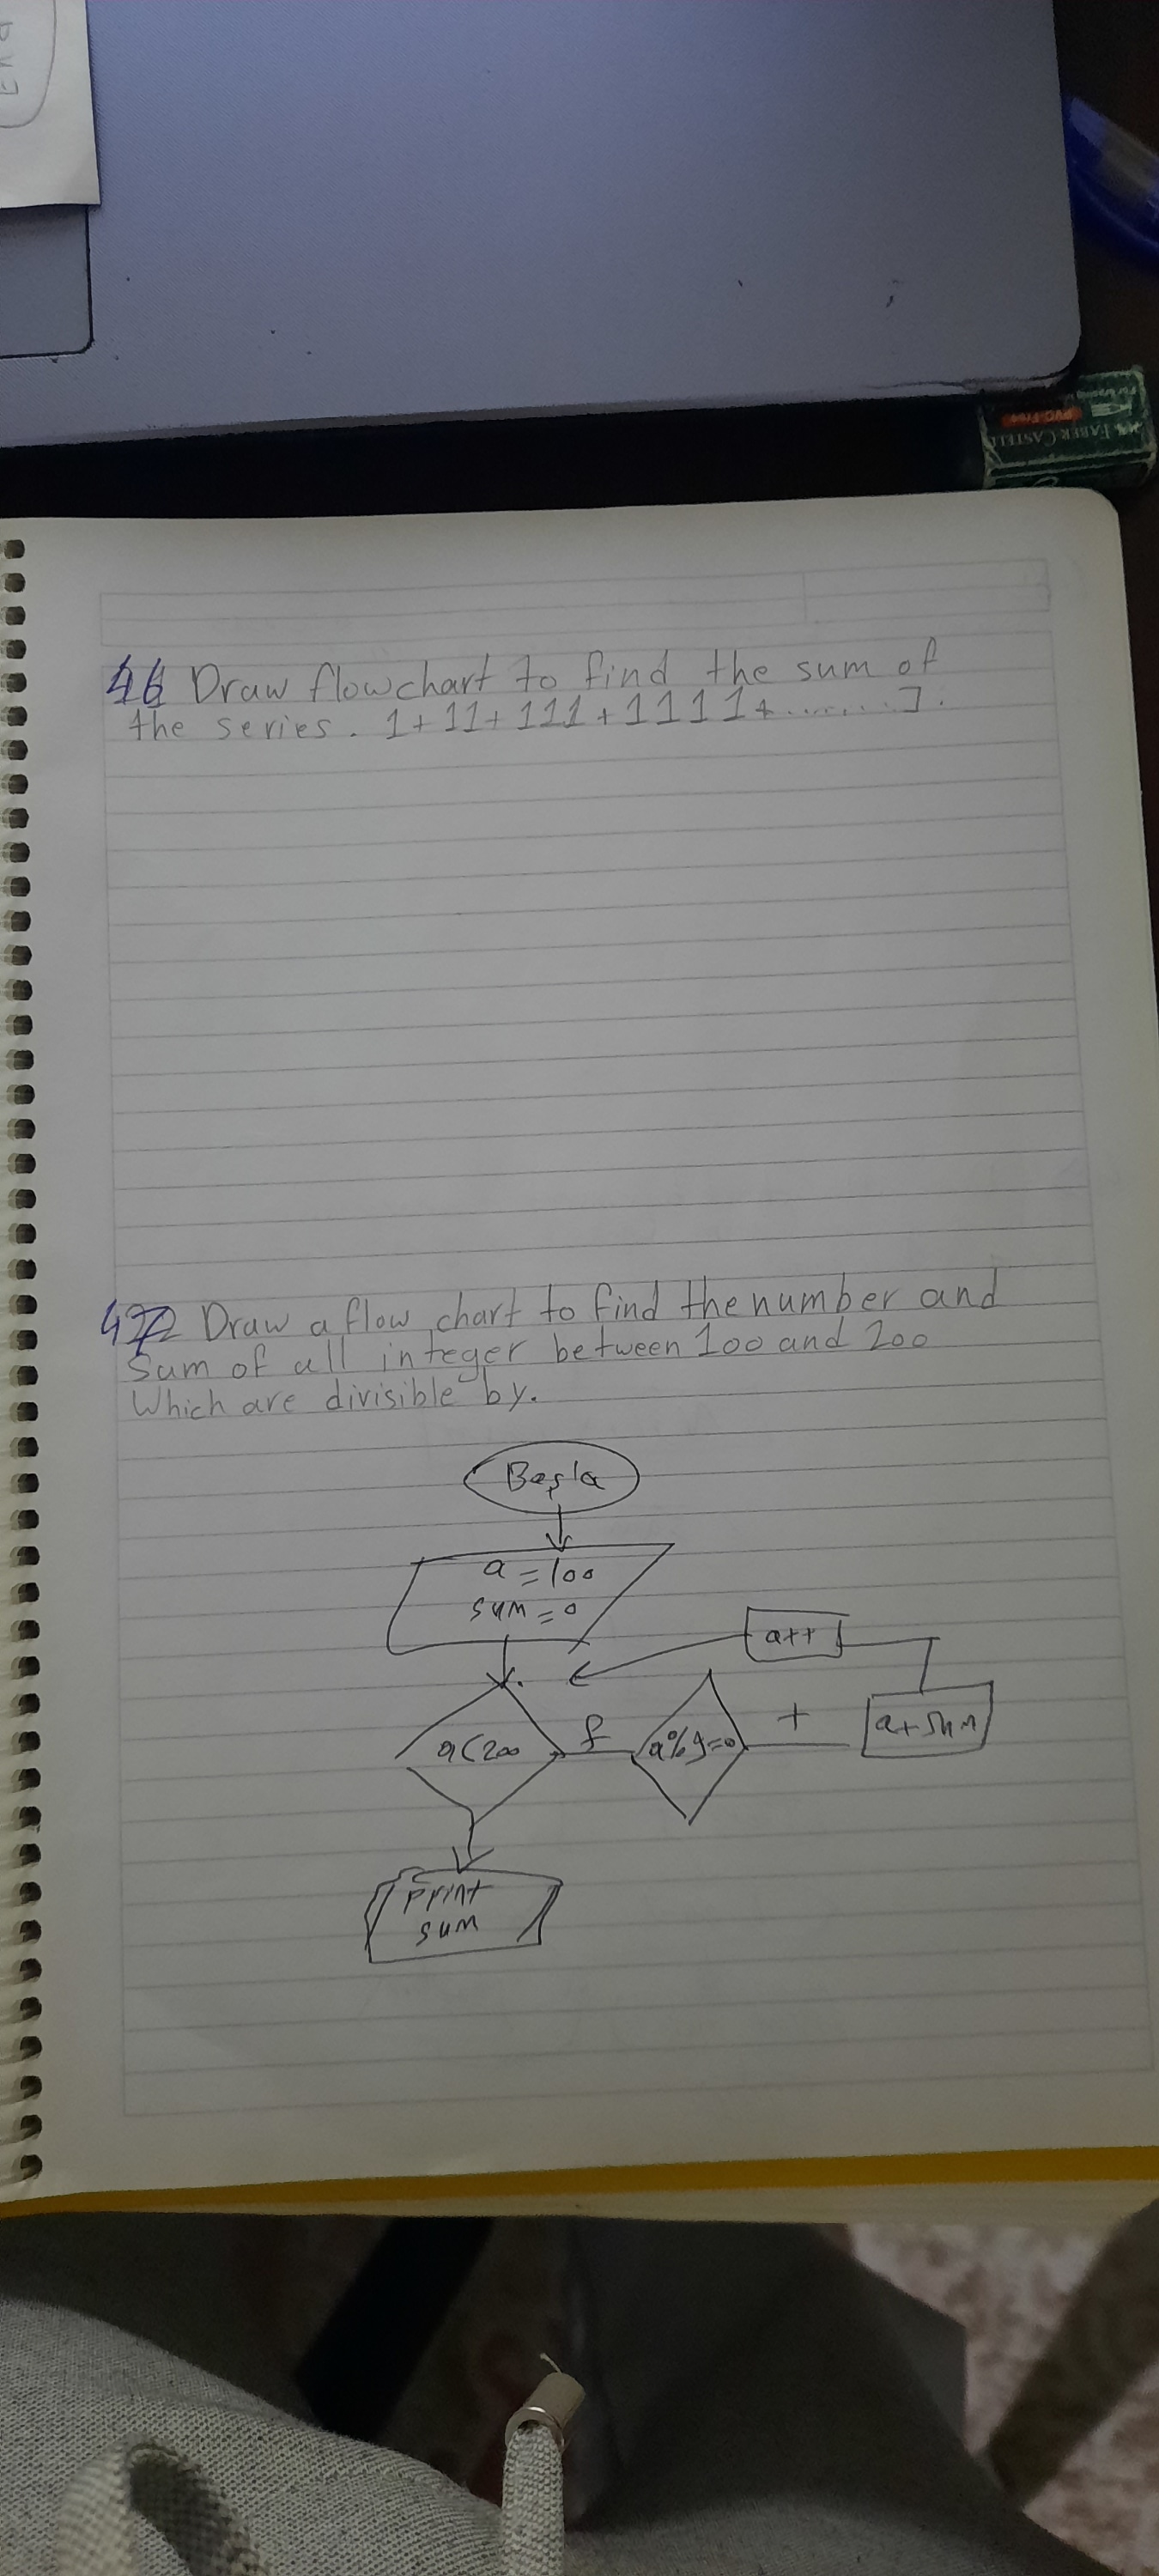 FABER CASTELL
PVC-Free
46 Draw flowchart to find the sum of
the series. 1+11+111+1111+.......].
47 Draw a flow chart to find the number and
Sum of all integer between 100 and 200
Which are divisible by.
Başla
a=100
sum=0
a++
a<200
f
a%9=0
+
a+sum
print
sum